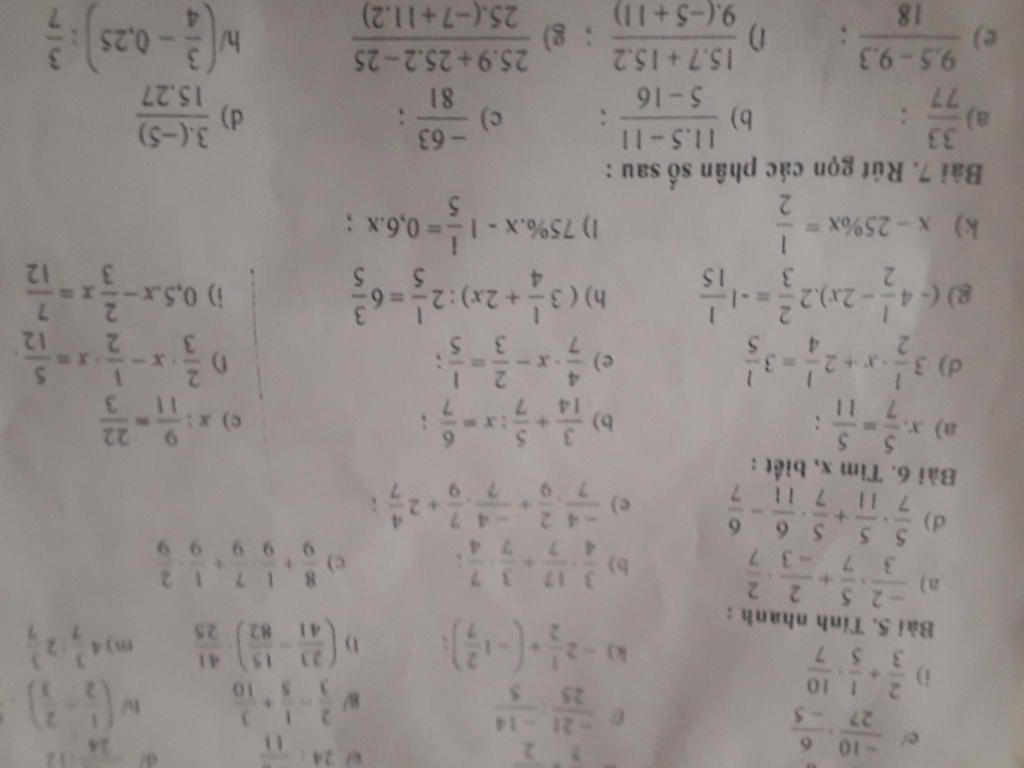 e/ \frac{-10}{27} \cdot \frac{6}{-5} f/ \frac{-21}{25} : \frac{-14}{5} g/ \frac{2}{3} - \frac{1}{5} + \frac{3}{10} h/ \left(\frac{1}{2} - \frac{2}{3}\right)
i) \frac{2}{3} + \frac{1}{5} \cdot \frac{10}{7} k) -2\frac{1}{2} + \left(-1\frac{2}{7}\right); l) \left(\frac{23}{41} - \frac{15}{82}\right) \cdot \frac{41}{25} m) 4\frac{3}{7} : 2\frac{3}{7}
Bài 5. Tính nhanh :
a) \frac{-2}{3} \cdot \frac{5}{7} + \frac{2}{-3} \cdot \frac{2}{7} b) \frac{3}{4} \cdot \frac{17}{7} + \frac{3}{7} \cdot \frac{7}{4}; c) \frac{8}{9} + \frac{1}{9} \cdot \frac{7}{9} + \frac{1}{9} \cdot \frac{2}{9}
d) \frac{5}{7} \cdot \frac{5}{11} + \frac{5}{7} \cdot \frac{6}{11} - \frac{6}{7} e) \frac{-4}{7} \cdot \frac{2}{9} + \frac{-4}{7} \cdot \frac{7}{9} + 2\frac{4}{7};
Bài 6. Tìm x, biết :
a) x.\frac{5}{7} = \frac{5}{11}; b) \frac{3}{14} + \frac{5}{7} : x = \frac{6}{7}; c) x : \frac{9}{11} = \frac{22}{3}
d) 3\frac{1}{2} \cdot x + 2\frac{1}{4} = 3\frac{1}{5} e) \frac{4}{7} \cdot x - \frac{2}{3} = \frac{1}{5}; f) \frac{2}{3} \cdot x - \frac{1}{2} \cdot x = \frac{5}{12}
g) (- 4\frac{1}{2} - 2x).2\frac{2}{3} = -1\frac{1}{15} h) ( 3\frac{1}{4} + 2x) : 2\frac{1}{5} = 6\frac{3}{5} i) 0,5.x - \frac{2}{3}x = \frac{7}{12}
k) x - 25%x = \frac{1}{2} l) 75%.x - 1\frac{1}{5} = 0,6.x ;
Bài 7. Rút gọn các phân số sau :
a) \frac{33}{77} ; b) \frac{11.5 - 11}{5 - 16} ; c) \frac{-63}{81} ; d) \frac{3.(-5)}{15.27}
e) \frac{9.5 - 9.3}{18} ; f) \frac{15.7 + 15.2}{9.(-5 + 11)} ; g) \frac{25.9 + 25.2 - 25}{25.(-7 + 11.2)} h/ \left(\frac{3}{4} - 0,25\right) : \frac{3}{7}